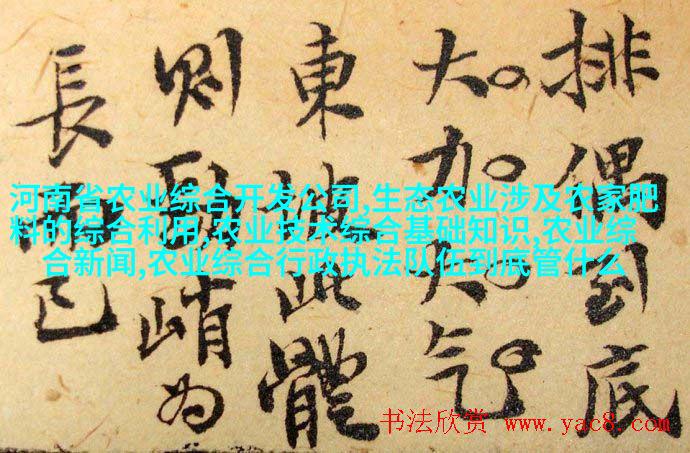 排偶到底
大加大气
東坡此體
則勁峭为
長已
河南省农业综合开发公司,生态农业涉及农家肥
料的综合利用,农业技术综合基础知识,农业综
合新闻,农业综合行政执法队伍到底管什么
书法欣赏 www.yac8.com